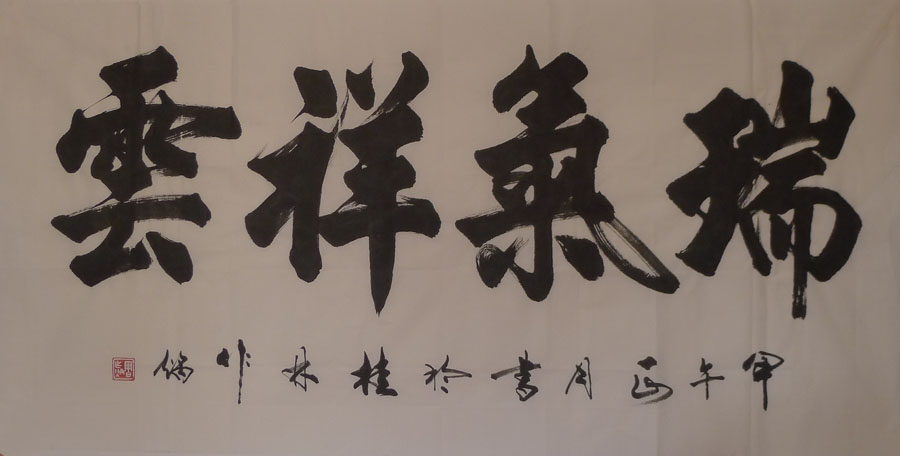 瑞氣祥雲
甲午正月書於桂林作